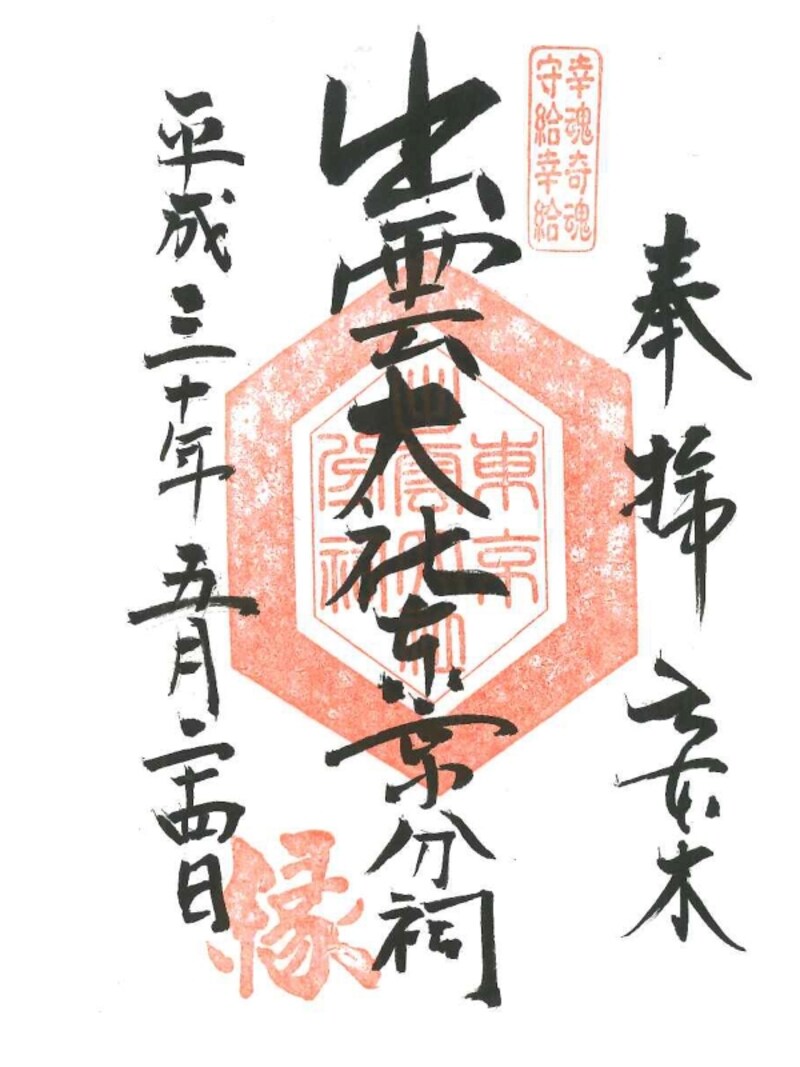 奉拝 六本木
幸魂奇魂
守給幸給
出雲大社東京分祠
東京
出雲大社
分祠
平成三十年五月二十四日
縁